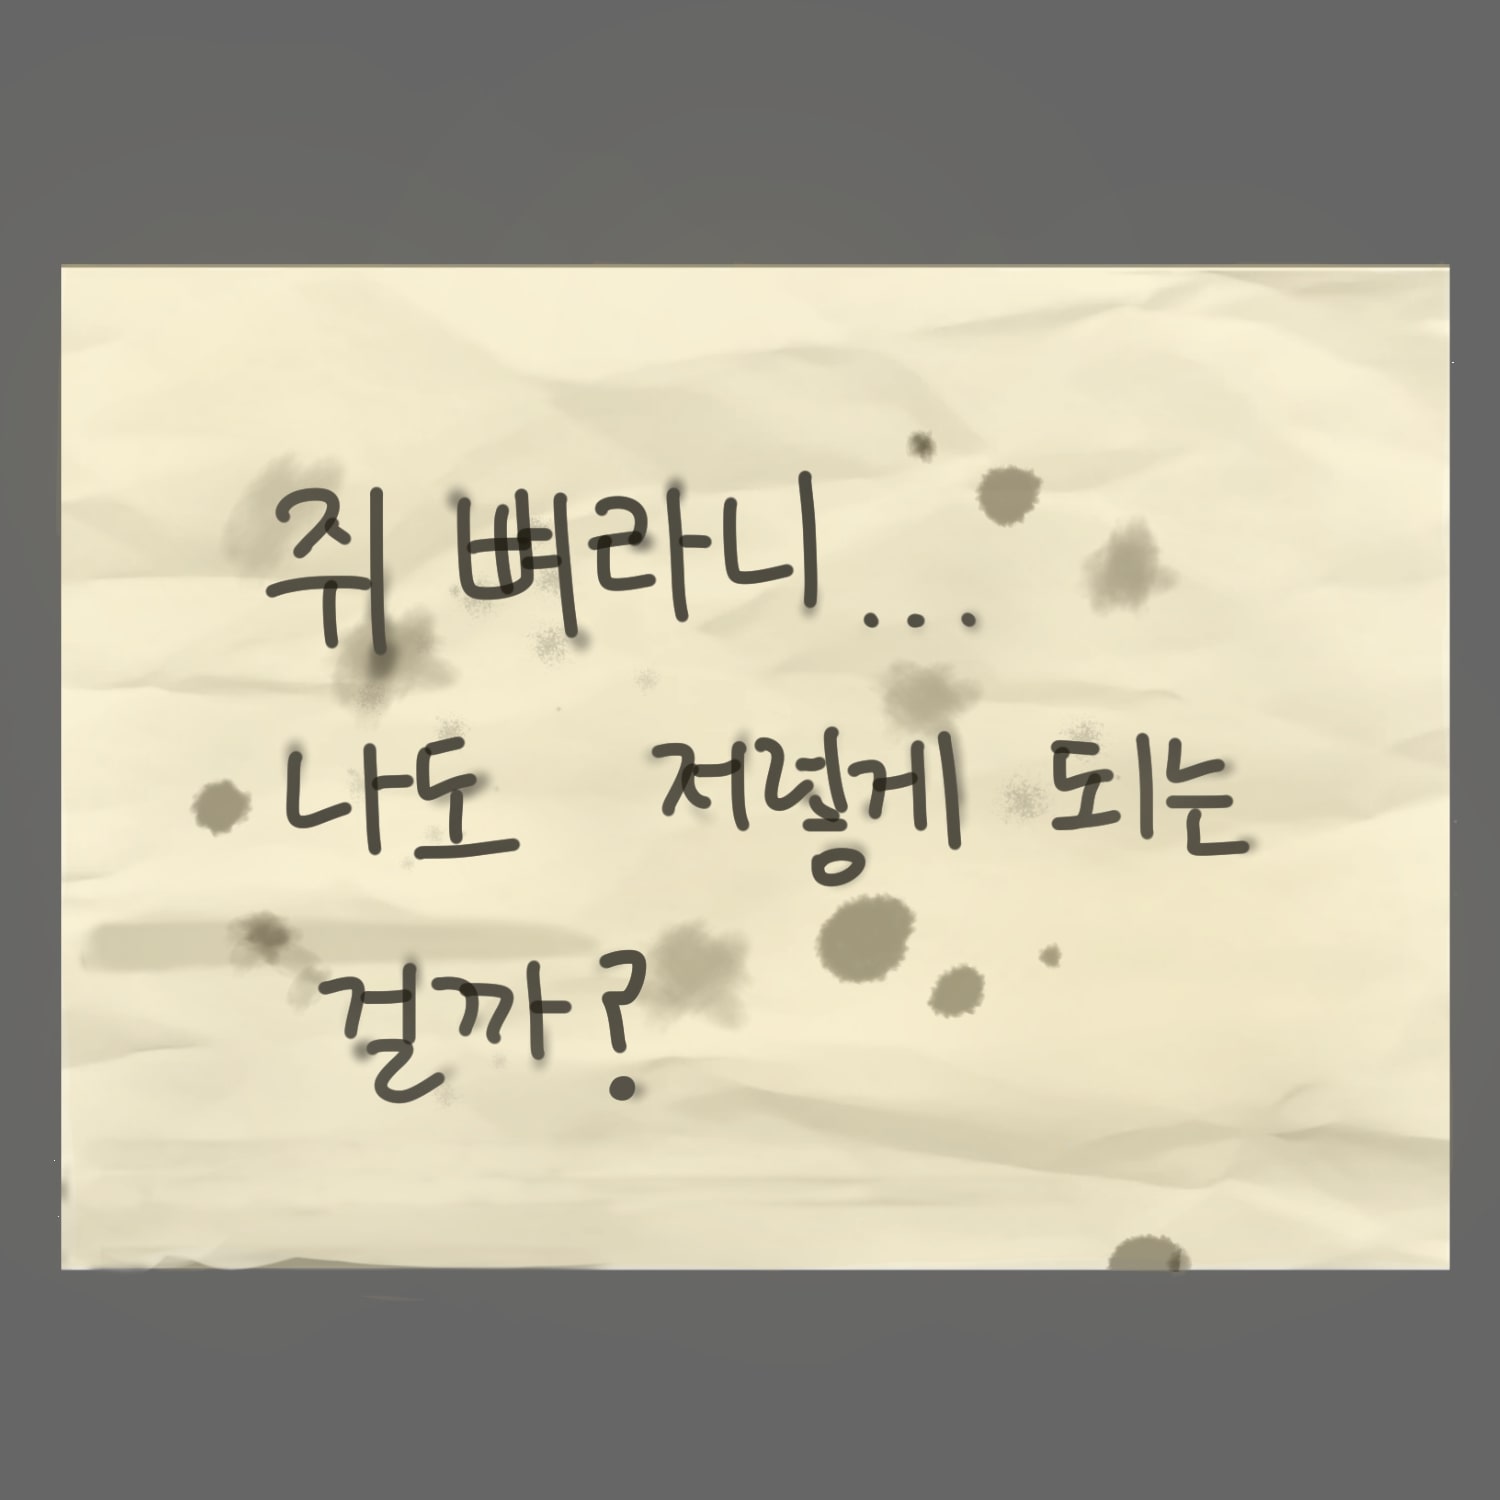 쥐 뼈라니...
나도 저렇게 되는
걸까?